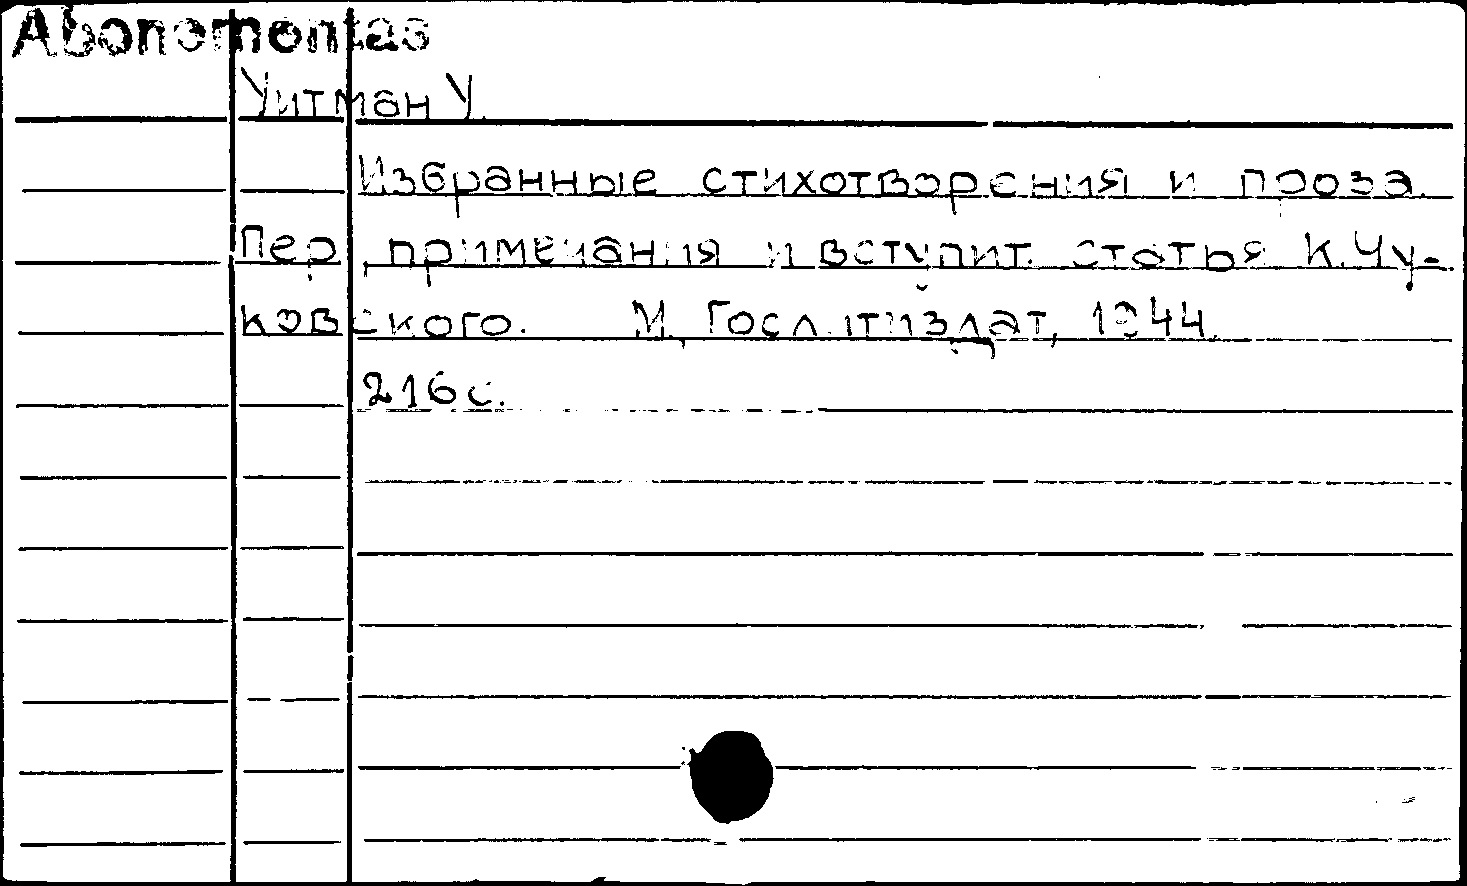 Abonementas
Уитман У.
Избранные стихотворения и проза.
Пер., примечания и вступит. статья К.Чу-
ковского. М., Гослитиздат, 1944.
216 с.